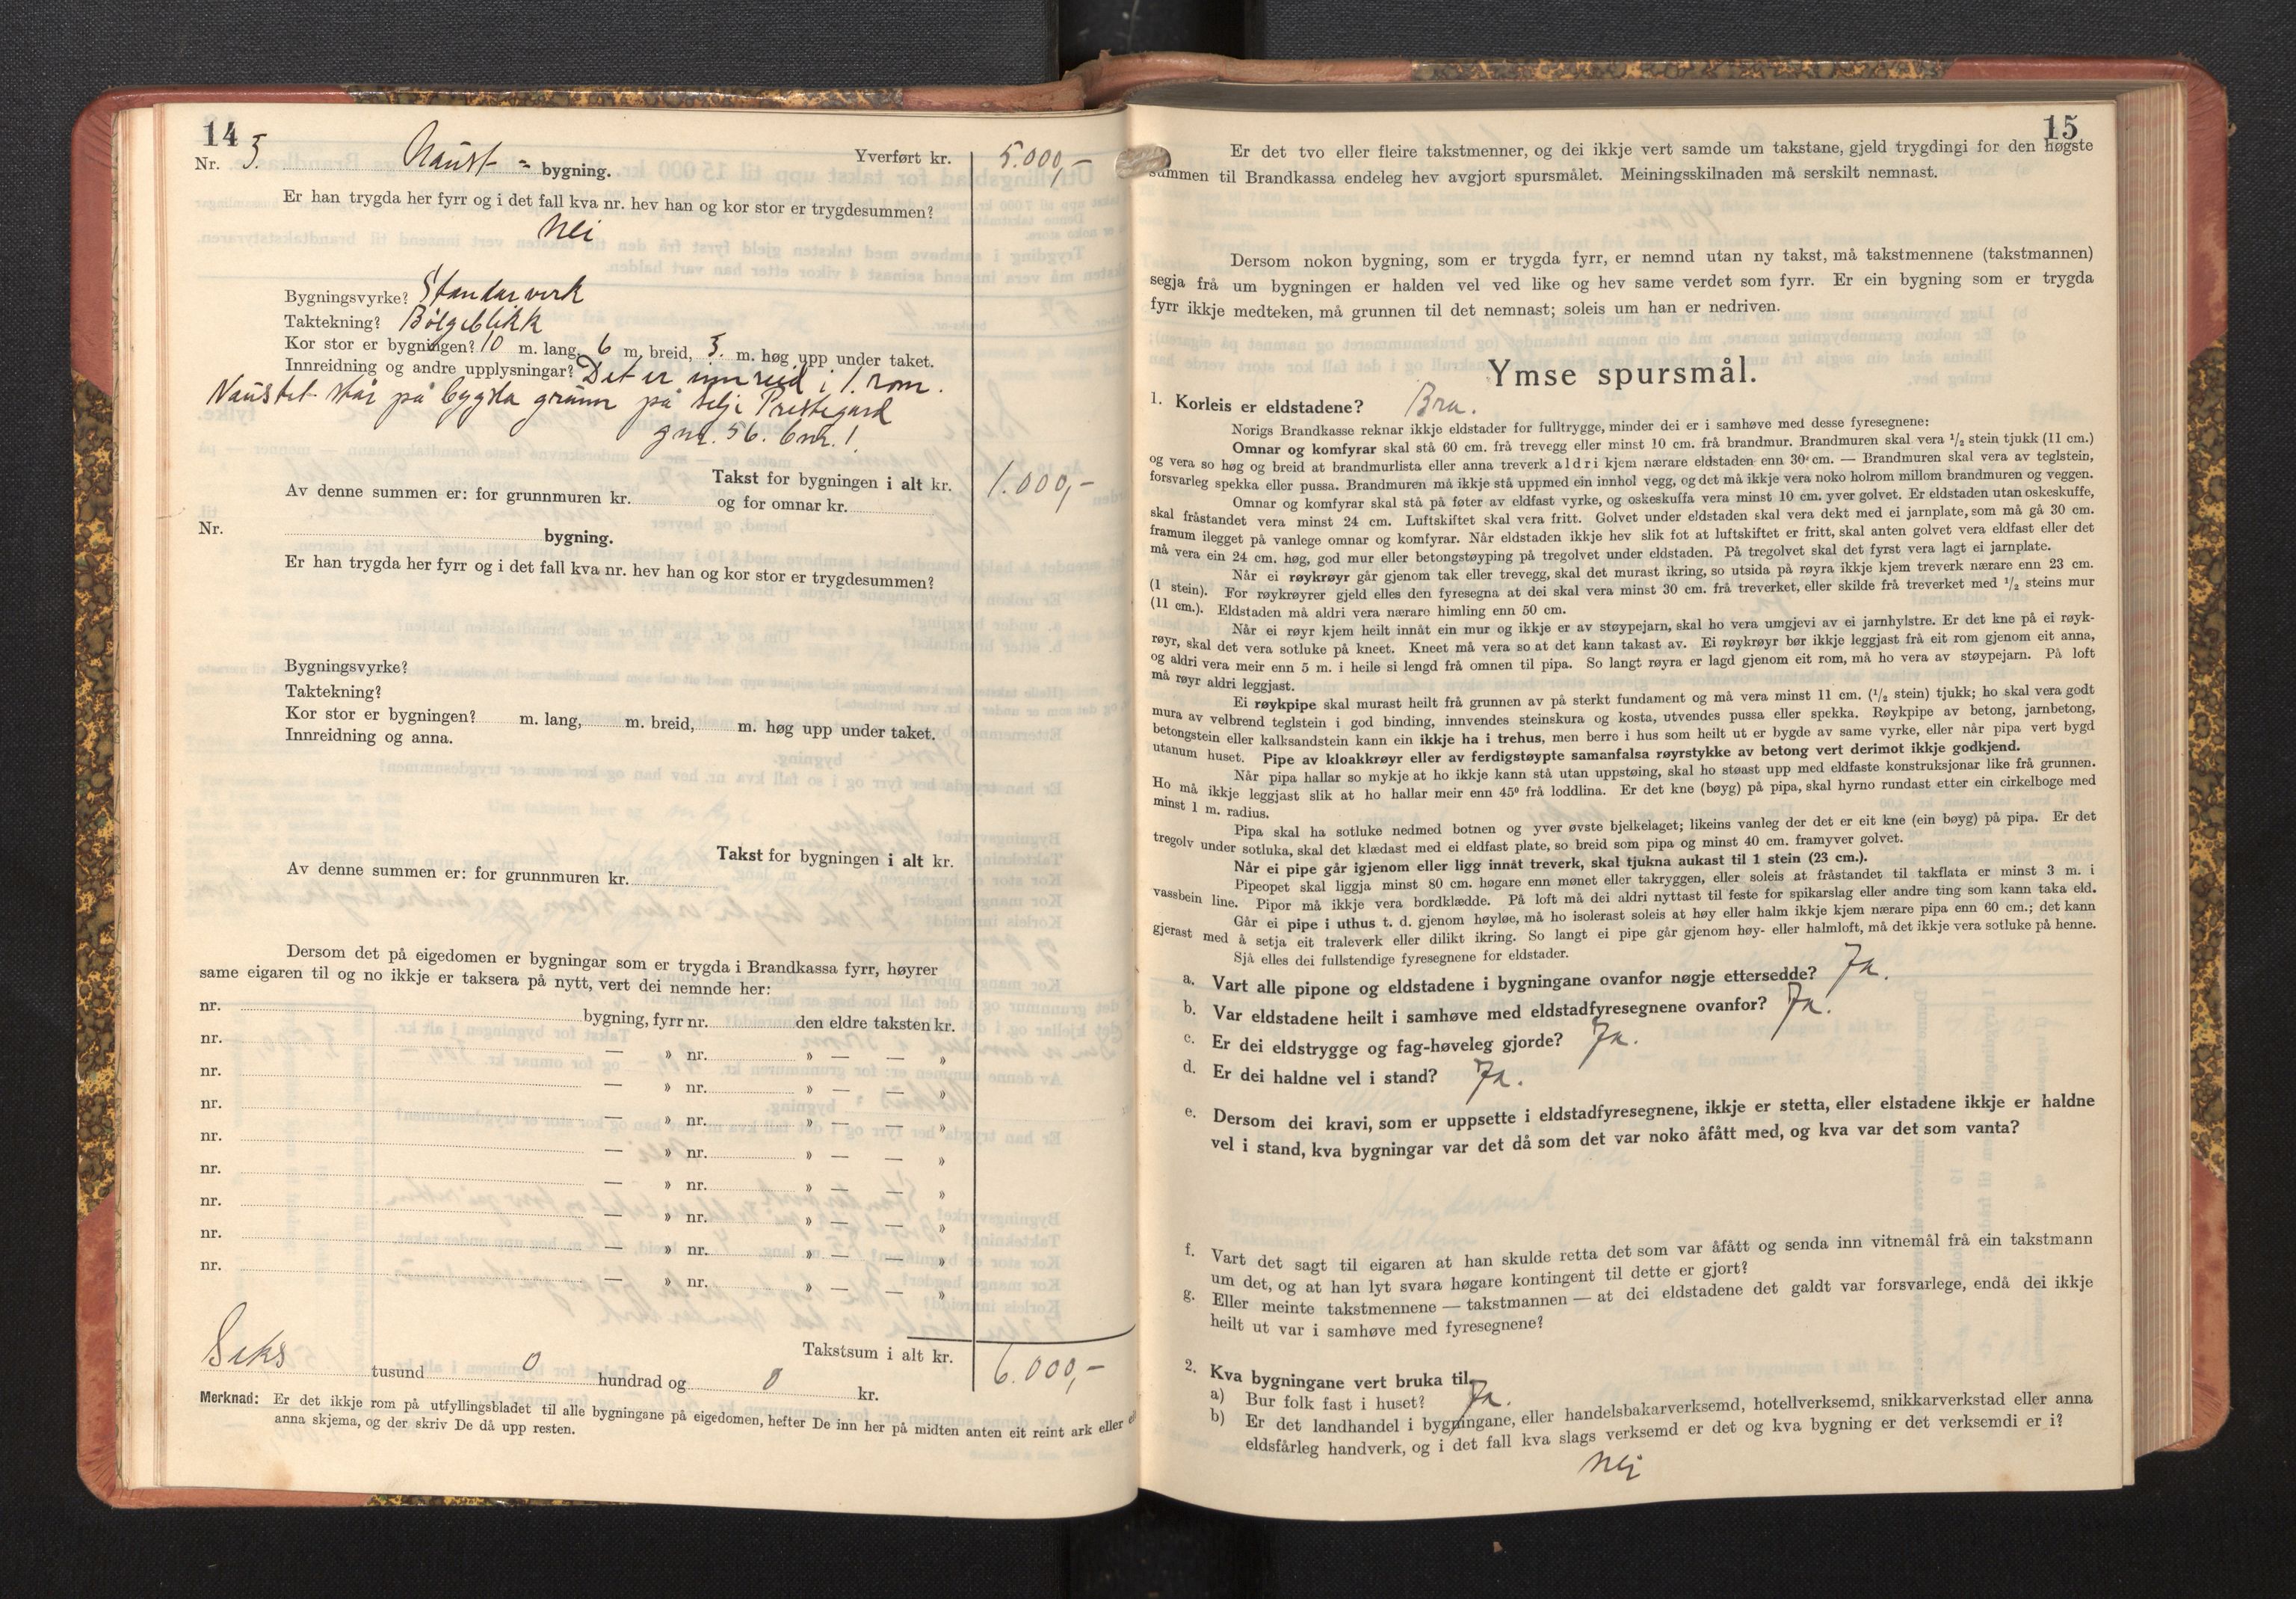 14
Nr. 3. Naust- bygning. Yverført kr. 5.000,-
Er han trygda her fyrr og i det fall kva nr. hev han og kor stor er trygdesummen?
Nei
Bygningsvyrke? Standarverk
Taktekning? Bölgeblikk
Kor stor er bygningen? 10 m. lang, 6 m. breid, 3. m. høg upp under taket.
Innreidning og andre upplysningar? Det er innreid i 1. rom.
Naustet står på bygsla grunn på selje Prestegard
gnr. 56. bnr. 1
Takst for bygningen i alt kr. 1.000,-
Av denne summen er: for grunnmuren kr. og for omnar kr.
Nr. bygning.
Er han trygda her fyrr og i det fall kva nr. hev han og kor stor er trygdesummen?
Bygningsvyrke?
Taktekning?
Kor stor er bygningen? m. lang, m. breid, m. høg upp under taket.
Innreidning og anna.
Takst for bygningen i alt kr.
Av denne summen er: for grunnmuren kr.
Dersom det på eigedomen er bygningar som er trygda i Brandkassa fyrr, høyrer
same eigaren til og no ikkje er taksera på nytt, vert dei nemnde her:
nr. bygning, fyrr nr. den eldre taksten kr.
nr. — » nr. » — — »
nr. — » nr. » — — »
nr. — » nr. » — — »
nr. — » nr. » — — »
nr. — » nr. » — — »
nr. — » nr. » — — »
nr. — » nr. » — — »
nr. — » nr. » — — »
Takstsum i alt kr. 6.000,-
Seks tusund 0 hundrad og 0 kr.
Merknad: Er det ikkje rom på utfyllingsbladet til alle bygningane på eigedomen, hefter De inn her på midten anten eit reint ark eller
anna skjema, og der skriv De då upp resten.
15
Er det tvo eller fleire takstmenner, og dei ikkje vert samde um takstane, gjeld trygdingi for den høgste
summen til Brandkassa endeleg hev avgjort spursmålet. Meiningsskilnaden må serskilt nemnast.
Dersom nokon bygning, som er trygda fyrr, er nemnd utan ny takst, må takstmennene (takstmannen)
segja frå um bygningen er halden vel ved like og hev same verdet som fyrr. Er ein bygning som er trygda
fyrr ikkje medteken, må grunnen til det nemnast; soleis um han er nedriven.
Ymse spursmål.
1. Korleis er eldstadene? Bra.
Norigs Brandkasse reknar ikkje eldstader for fulltrygge, minder dei er i samhøve med desse fyresegnene:
Omnar og komfyrar skal stå 60 cm. frå trevegg eller minst 10 cm. frå brandmur. Brandmuren skal vera ½ stein tjukk (11 cm.)
og vera so høg og breid at brandmurlista eller anna treverk aldri kjem nærare eldstaden enn 30 cm. — Brandmuren skal vera av teglstein,
forsvarleg spekka eller pussa. Brandmuren må ikkje stå uppmed ein innhol vegg, og det må ikkje vera noko holrom millom brandmuren og veggen.
Omnar og komfyrar skal stå på føter av eldfast vyrke, og oskeskuffa vera minst 10 cm. yver golvet. Er eldstaden utan oskeskuffe,
skal fråstandet vera minst 24 cm. Luftskiftet skal vera fritt. Golvet under eldstaden skal vera dekt med ei jarnplate, som må gå 30 cm.
framum ilegget på vanlege omnar og komfyrar. Når eldstaden ikkje hev slik fot at luftskiftet er fritt, skal anten golvet vera eldfast eller det
må vera ein 24 cm. høg, god mur eller betongstøyping på tregolvet under eldstaden. På tregolvet skal det fyrst vera lagt ei jarnplate.
Når ei røykrøyr går gjenom tak eller trevegg, skal det murast ikring, so utsida på røyra ikkje kjem treverk nærare enn 23 cm.
(1 stein). For røykrøyrer gjeld elles den fyresegna at dei skal vera minst 30 cm. frå treverket, eller skilde frå treverket med ½ steins mur
(11 cm.). Eldstaden må aldri vera nærare himling enn 50 cm.
Når ei røyr kjem heilt innåt ein mur og ikkje er av støypejarn, skal ho vera umgjevi av ei jarnhylstre. Er det kne på ei røyk-
røyr, skal det vera sotluke på kneet. Kneet må vera so at det kann takast av. Ei røykrøyr bør ikkje leggjast frå eit rom gjenom eit anna,
og aldri vera meir enn 5 m. i heile si lengd frå omnen til pipa. So langt røyra er lagd gjenom eit rom, må ho vera av støypejarn. På loft
må røyr aldri leggjast.
Ei røykpipe skal murast heilt frå grunnen av på sterkt fundament og må vera minst 11 cm. (½ stein) tjukk; ho skal vera godt
mura av velbrend teglstein i god binding, innvendes steinskura og kosta, utvendes pussa eller spekka. Røykpipe av betong, jarnbetong,
betongstein eller kalksandstein kann ein ikkje ha i trehus, men berre i hus som heilt ut er bygde av same vyrke, eller når pipa vert bygd
utanum huset. Pipe av kloakkrøyr eller av ferdigstøypte samanfalsa røyrstykke av betong vert derimot ikkje godkjend.
Når pipa hallar so mykje at ho ikkje kann stå utan uppstøing, skal ho støast upp med eldfaste konstruksjonar like frå grunnen.
Ho må ikkje leggjast slik at ho hallar meir enn 45º frå loddlina. Er det kne (bøyg) på pipa, skal hyrno rundast etter ein cirkelboge med
minst 1 m. radius.
Pipa skal ha sotluke nedmed botnen og yver øvste bjelkelaget; likeins vanleg der det er eit kne (ein bøyg) på pipa. Er det
tregolv under sotluka, skal det klædast med ei eldfast plate, so breid som pipa og minst 40 cm. framyver golvet.
Når ei pipe går igjenom eller ligg innåt treverk, skal tjukna aukast til 1 stein (23 cm.).
Pipeopet skal liggja minst 80 cm. høgare enn mønet eller takryggen, eller soleis at fråstandet til takflata er minst 3 m. i
vassbein line. Pipor må ikkje vera bordklædde. På loft må dei aldri nyttast til feste for spikarslag eller andre ting som kann taka eld.
Går ei pipe i uthus t. d. gjenom høyløe, må ho isolerast soleis at høy eller halm ikkje kjem nærare pipa enn 60 cm.; det kann
gjerast med å setja eit traleverk eller dilikt ikring. So langt ei pipe går gjenom høy- eller halmloft, må det ikkje vera sotluke på henne.
Sjå elles dei fullstendige fyresegnene for eldstader.
a. Vart alle pipone og eldstadene i bygningane ovanfor nøgje ettersedde? Ja.
b. Var eldstadene heilt i samhøve med eldstadfyresegnene ovanfor? Ja.
c. Er dei eldstrygge og fag-høveleg gjorde? Ja.
d. Er dei haldne vel i stand? Ja.
e. Dersom dei kravi, som er uppsette i eldstadfyresegnene, ikkje er stetta, eller elstadene ikkje er haldne
vel i stand, kva bygningar var det då som det var noko åfått med, og kva var det som vanta?
f. Vart det sagt til eigaren at han skulde retta det som var åfått og senda inn vitnemål frå ein takstmann
um det, og at han lyt svara høgare kontingent til dette er gjort?
g. Eller meinte takstmennene — takstmannen — at dei eldstadene det galdt var forsvarlege, endå dei ikkje
heilt ut var i samhøve med fyresegnene?
2. Kva bygningane vert bruka til.
a) Bur folk fast i huset? Ja.
b) Er det landhandel i bygningane, eller handelsbakarverksemd, hotellverksemd, snikkarverkstad eller anna
eldsfårleg handverk, og i det fall kva slags verksemd er det og kva bygning er det verksemdi er i?
Nei